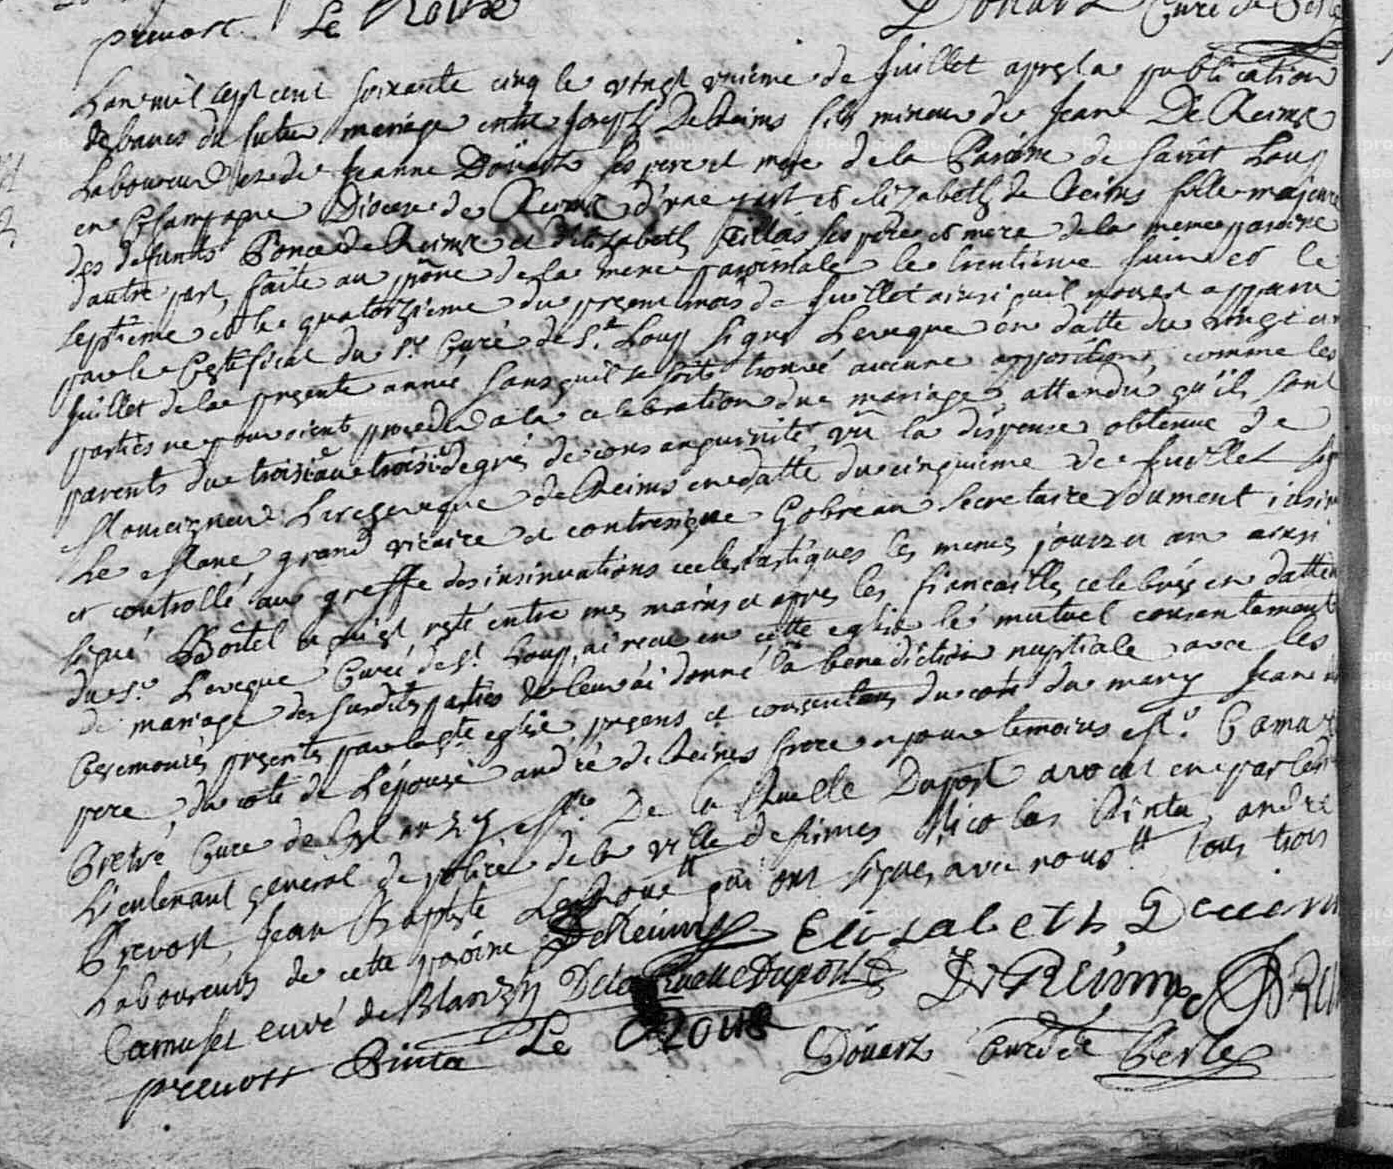 prevost. Le Roux Douart Curé de Perle
Lan mil sept cent soixante cinq le vingt unieme de Juillet apres la publication
des bancs du futur mariage entre Joseph De Reims fils mineur de Jean De Reims
Laboureur et de Jeanne Doüart ses pere et mere de la Paroisse de Saint Loup
en Champagne Diocese de Reims d'une part et elizabeth de Reims fille majeure
des defunts Ponce de Reims et d'elizabeth ses pere et mere de la meme paroisse
dautre part, faite au prône de la messe paroissiale le trentieme Juin et le
septieme et le quatorzieme du present mois de Juillet ainsi quil nous est apparu
par le Certificat du Sr. Curé de St. Loup signé Leveque en datte du vingt
Juillet de la presente année sans quil se soit trouvé aucune opposition, comme les
parties ne pouvoient proceder a la celebration du mariage attendu qu'ils sont
parents du trois au trois.e degré de consanguinité, vû la dispense obtenue de
Monseigneur L'archeveque de Reims en datte du cinquieme de Juillet
grand vicaire et contresigné Gobreau secretaire dument insin
et controllé au greffe des insinuations ecclesiastiques les memes jour et an ainsi
signé Boitel qui est resté entre mes mains et apres les fiancailles celebrées en datte
du Sr. Leveque Curé de St. Loup, ai recu en cette eglise le mutuel consentement
de mariage des susdites parties et leur ai donné la benediction nuptiale avec les
Ceremonies prescrites par la ste eglise, presens et consentans du coté du mary Jean
pere, du coté de Lépouse andré de Reims frere et pour temoins Mr. Camus
Bretré Curé de Blanzy, Mr. De la Ruelle Duport avocat en parlem
Lieutenant general de police de la ville de Nicolas Pinta, andré
Prevost, Jean Baptiste Le Roux " qui ont signés avec nous " tous trois
Laboureurs de cette paroisse De Reims Elisabeth De
Camuset curé de Blanzy De la Ruelle Duport De Reims
prevost Pinta Le Roux Doüart Curé de Perle